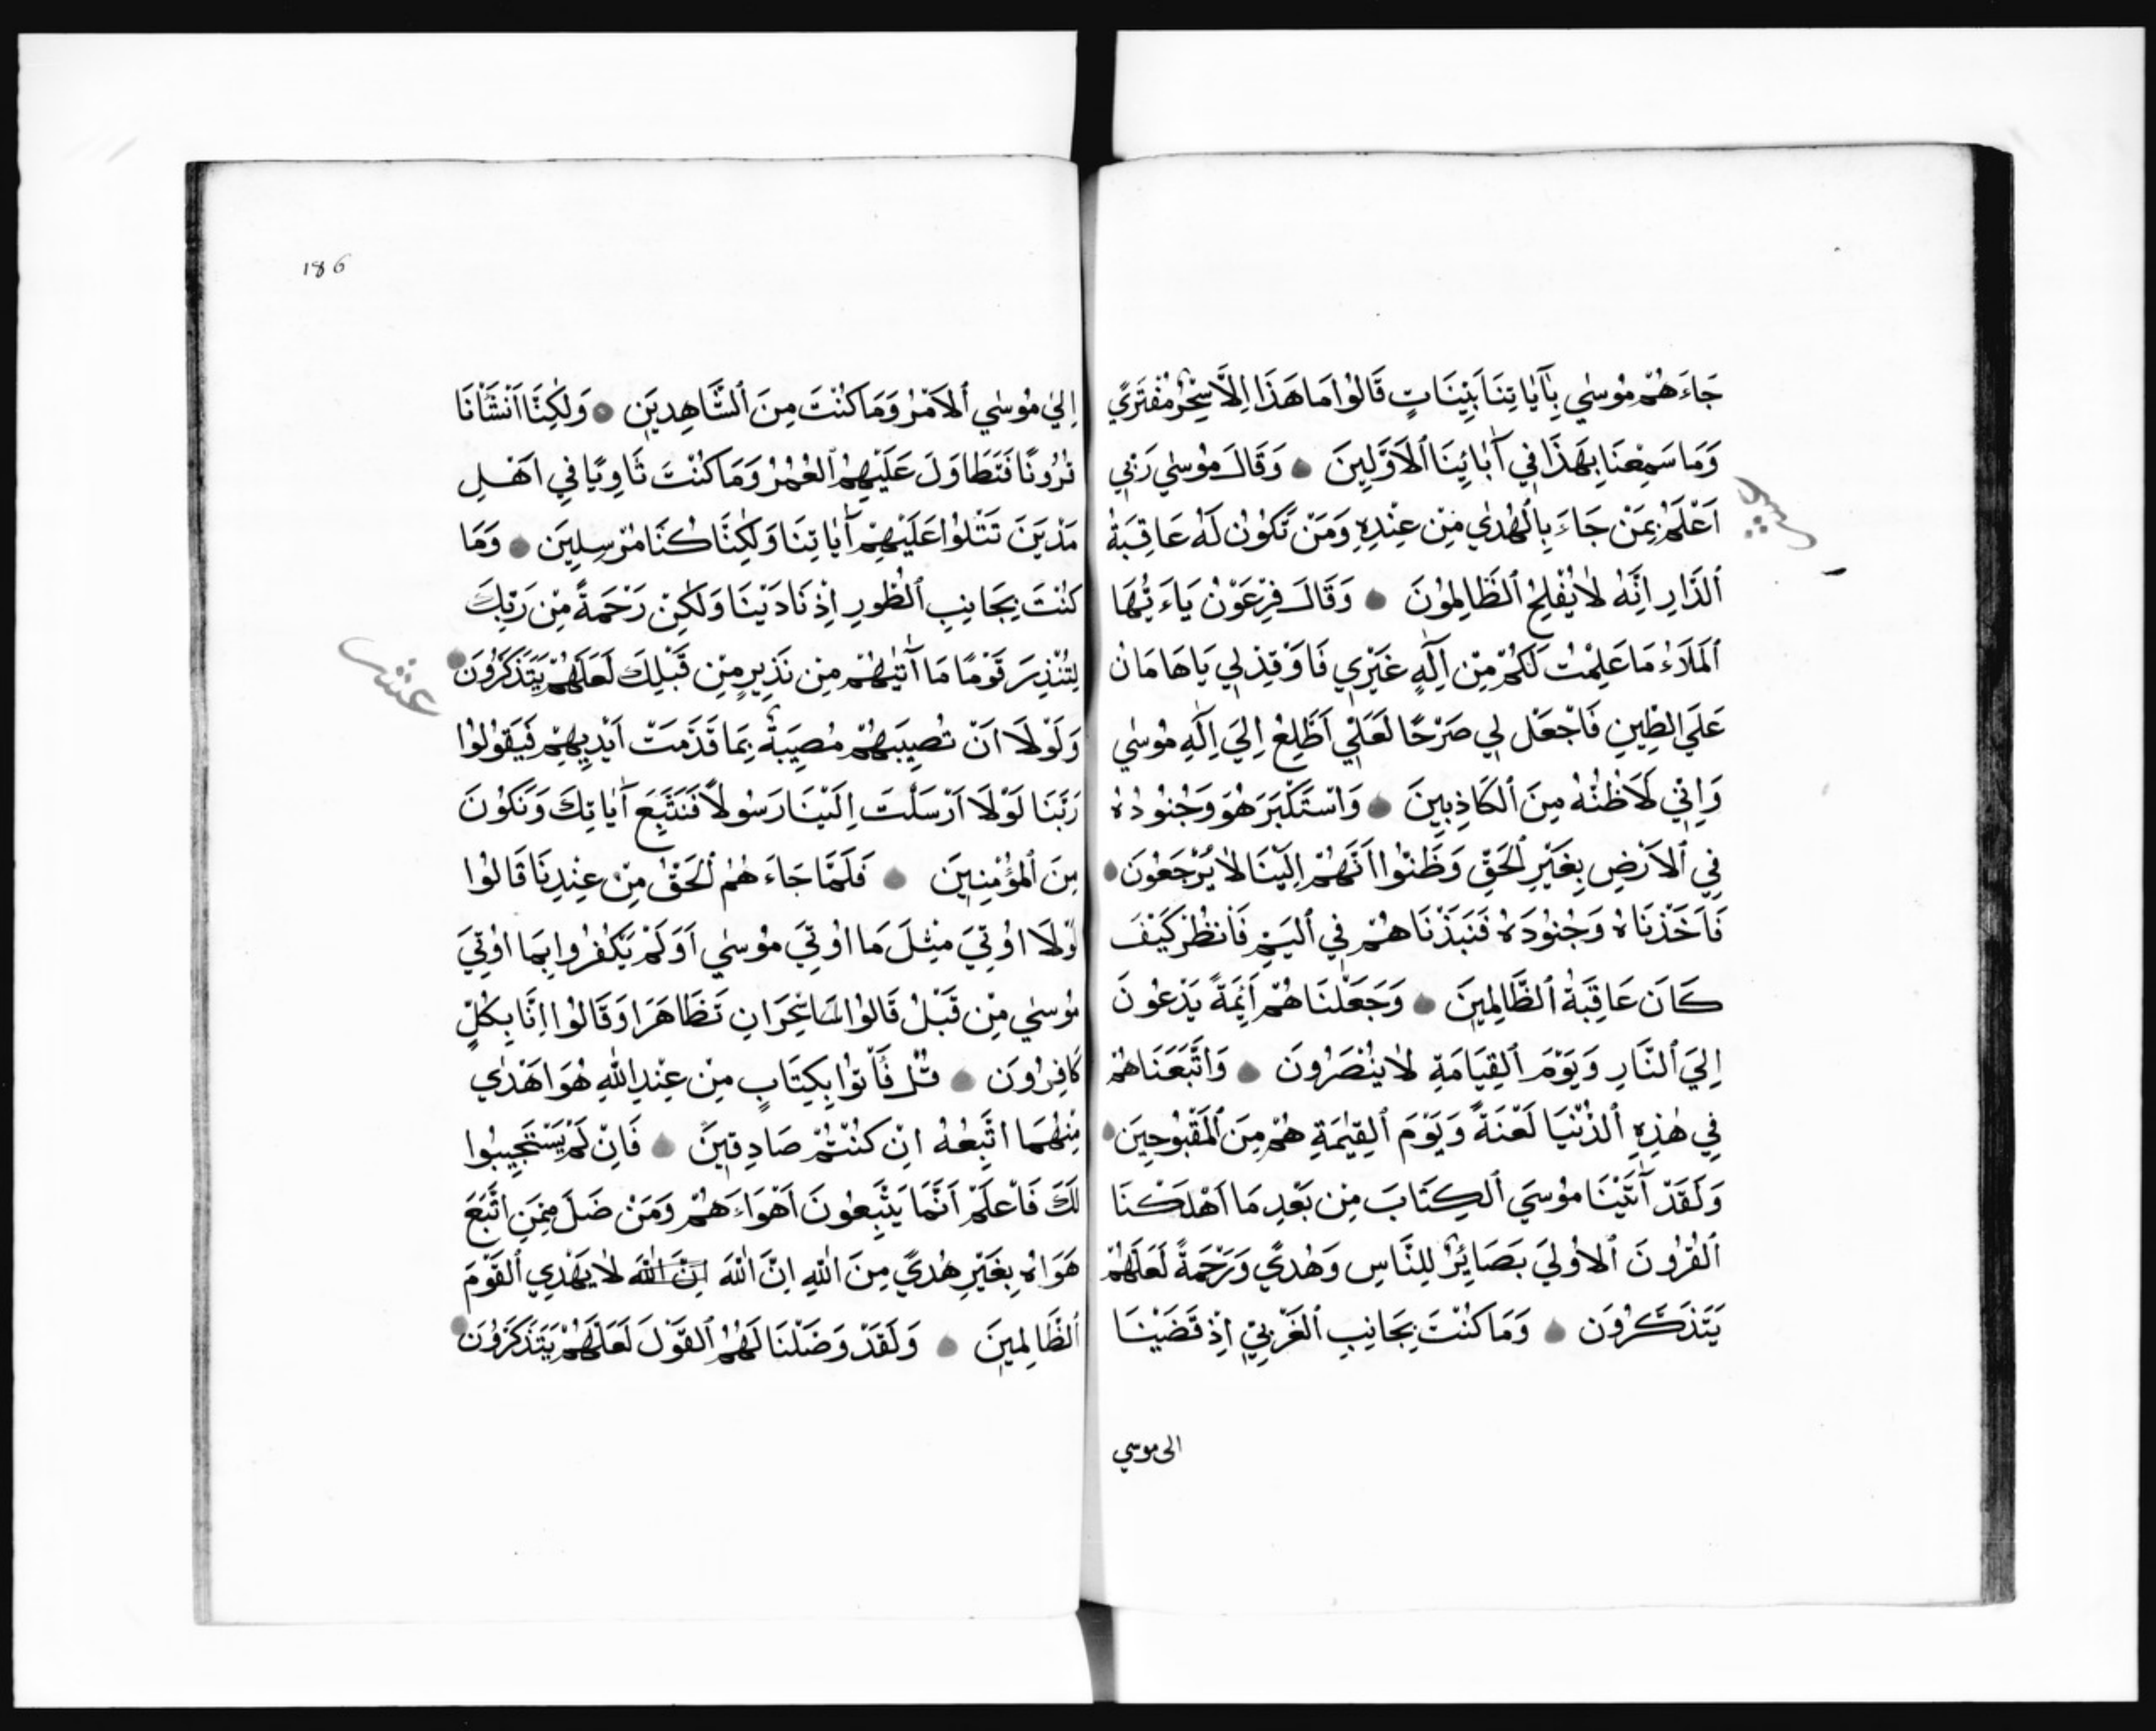 جَاءَهُمْ مُوسٰي بِآيَاتِنَا بَيِّنَاتٍ قَالُوا مَا هَذَا اِلَّا سِحْرٌ مُفْتَرًي
وَمَا سَمِعْنَا بِهَذَا فِي آبَائِنَا الْاَوَّلِينَ وَقَالَ مُوسٰي رَبِّي
اَعْلَمُ بِمَنْ جَاءَ بِالْهُدٰي مِنْ عِنْدِهِ وَمَنْ تَكُونُ لَهُ عَاقِبَةُ
الدَّارِ اِنَّهُ لَا يُفْلِحُ الظَّالِمُونَ وَقَالَ فِرْعَوْنُ يَاءَيُّهَا
الْمَلَاءُ مَا عَلِمْتُ لَكُمْ مِنْ اِلٰهٍ غَيْرِي فَاَوْقِدْ لِي يَا هَامَانُ
عَلَي الطِّينِ فَاجْعَل لِي صَرْحًا لَعَلِّي اَطَّلِعُ اِلَيَ اِلٰهِ مُوسٰي
وَاِنِّي لَاَظُنُّهُ مِنَ الْكَاذِبِينَ وَاسْتَكْبَرَ هُوَ وَجُنُودُهُ
فِي الْاَرْضِ بِغَيْرِ الْحَقِّ وَظَنُّوا اَنَّهُمْ اِلَيْنَا لَا يُرْجَعُونَ
فَاَخَذْنَاهُ وَجُنُودَهُ فَنَبَذْنَاهُمْ فِي الْيَمِّ فَانْظُرْ كَيْفَ
كَانَ عَاقِبَةُ الظَّالِمِينَ وَجَعَلْنَاهُمْ اَئِمَةً يَدْعُونَ
اِلَيَ النَّارِ وَيَوْمَ الْقِيَامَةِ لَا يُنْصَرُونَ وَاَتْبَعْنَاهُمْ
فِي هٰذِهِ الدُّنْيَا لَعْنَةً وَيَوْمَ الْقِيٰمَةِ هُمْ مِنَ الْمَقْبُوحِينَ
وَلَقَدْ آتَيْنَا مُوسَيَ الْكِتَابَ مِنْ بَعْدِ مَا اَهْلَكْنَا
الْقُرُونَ الْاُولٰيَ بَصَائِرَ لِلنَّاسِ وَهُدًي وَرَحْمَةً لَعَلَّهُمْ
يَتَذَكَّرُونَ وَمَا كُنْتَ بِجَانِبِ الْغَرْبِيِّ اِذْ قَضَيْنَا
الى موسي
186
اِلٰي مُوسٰي الْاَمْرُ وَمَا كُنْتَ مِنَ الشَّاهِدِينَ وَلٰكِنَّا اَنْشَأْنَا
قُرُونًا فَتَطَاوَلَ عَلَيْهِمُ الْعُمُرُ وَمَا كُنْتَ ثَاوِيًا فِي اَهْلِ
مَدْيَنَ تَتْلُوا عَلَيْهِمْ آيَاتِنَا وَلٰكِنَّا كُنَّا مُرْسِلِينَ وَمَا
كُنْتَ بِجَانِبِ الطُّورِ اِذْ نَادَيْنَا وَلٰكِنْ رَحْمَةً مِنْ رَبِّكَ
لِتُنْذِرَ قَوْمًا مَا آتٰيهُمْ مِنْ نَذِيرٍ مِنْ قَبْلِكَ لَعَلَّهُمْ يَتَذَكَّرُونَ
عشر
وَلَوْلَا اَنْ تُصِيبَهُمْ مُصِيبَةٌ بِمَا قَدَّمَتْ اَيْدِيهِمْ فَيَقُولُوا
رَبَّنَا لَوْلَا اَرْسَلْتَ اِلَيْنَا رَسُولًا فَنَتَّبِعَ آيَاتِكَ وَنَكُونَ
مِنَ الْمُؤْمِنِينَ فَلَمَّا جَاءَهُمُ الْحَقُّ مِنْ عِنْدِنَا قَالُوا
لَوْلَا اُوتِيَ مِثْلَ مَا اُوتِيَ مُوسٰي اَوَلَمْ يَكْفُرُوا بِمَا اُوتِيَ
مُوسٰي مِنْ قَبْلُ قَالُوا سَاحِرَانِ تَظَاهَرَا وَقَالُوا اِنَّا بِكُلٍّ
كَافِرُونَ قُلْ فَأْتُوا بِكِتَابٍ مِنْ عِنْدِ اللّٰهِ هُوَ اَهْدٰي
مِنْهُمَا اَتَّبِعْهُ اِنْ كُنْتُمْ صَادِقِينَ فَاِنْ لَمْ يَسْتَجِيبُوا
لَكَ فَاعْلَمْ اَنَّمَا يَتَّبِعُونَ اَهْوَاءَهُمْ وَمَنْ ضَلَّ مِمَّنِ اتَّبَعَ
هَوَاهُ بِغَيْرِ هُدًي مِنَ اللّٰهِ اِنَّ اللّٰهَ اِنَّ اللّٰهَ لَا يَهْدِي الْقَوْمَ
الظَّالِمِينَ وَلَقَدْ وَصَّلْنَا لَهُمُ الْقَوْلَ لَعَلَّهُمْ يَتَذَكَّرُونَ